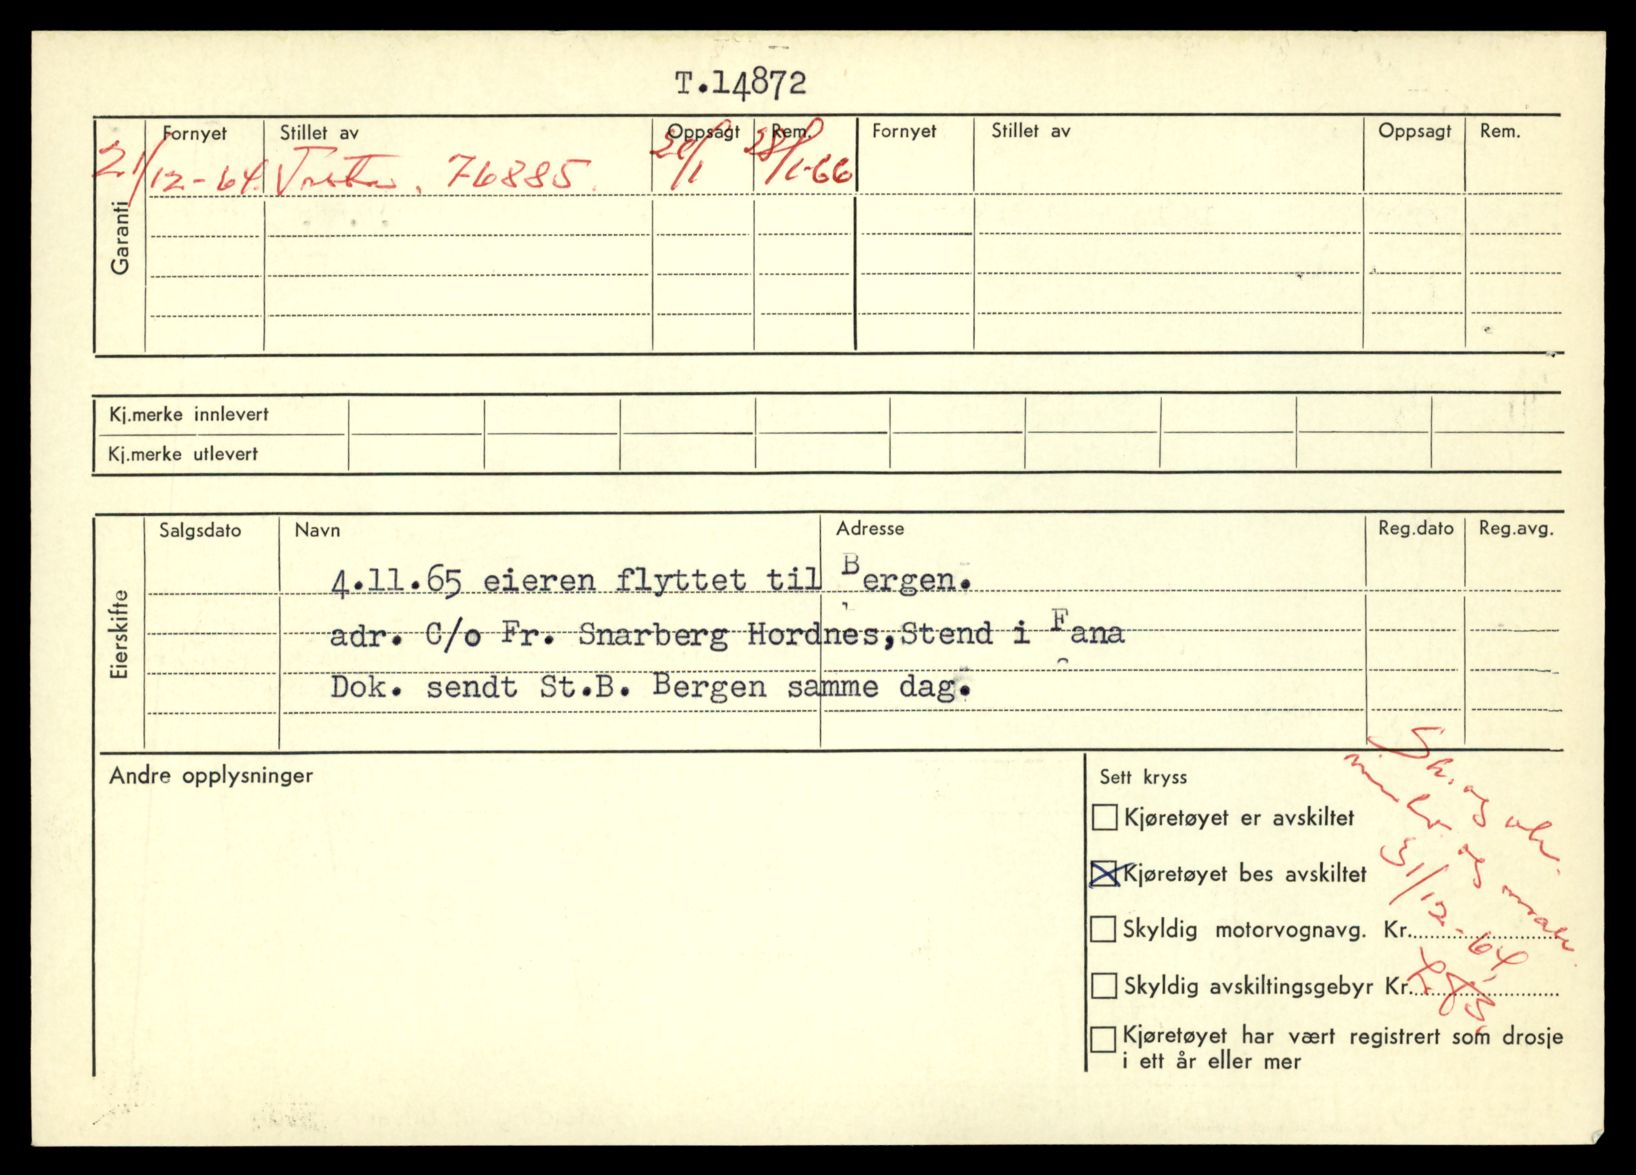 T.14872
Garanti
Fornyet Stillet av Oppsagt Rem. Fornyet Stillet av Oppsagt Rem.
21/12-64. 76885. 28/1-66
Kj.merke innlevert
Kj.merke utlevert
Eierskifte
Salgsdato Navn Adresse Reg.dato Reg.avg.
4.11.65 eieren flyttet til Bergen.
adr. C/o Fr. Snarberg Hordnes,Stend i Fana
Dok. sendt St.B. Bergen samme dag.
Andre opplysninger
Sett kryss
Kjøretøyet er avskiltet
Kjøretøyet bes avskiltet
Skyldig motorvognavg. Kr.
Skyldig avskiltingsgebyr Kr.
Kjøretøyet har vært registrert som drosje
i ett år eller mer
og
31/12-64